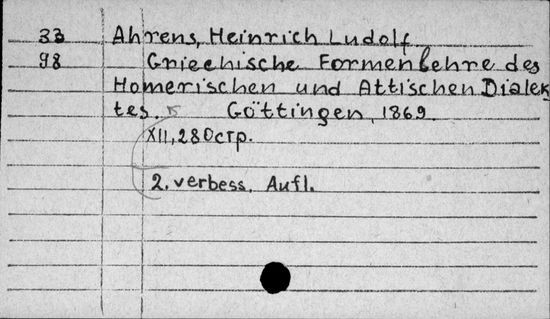 33 Ahrens, Heinrich Ludolf
98 Griechische Formenlehre des
Homerischen und Attischen Dialek
tes. Göttingen, 1869.
XII, 280стр.
2. verbess. Aufl.